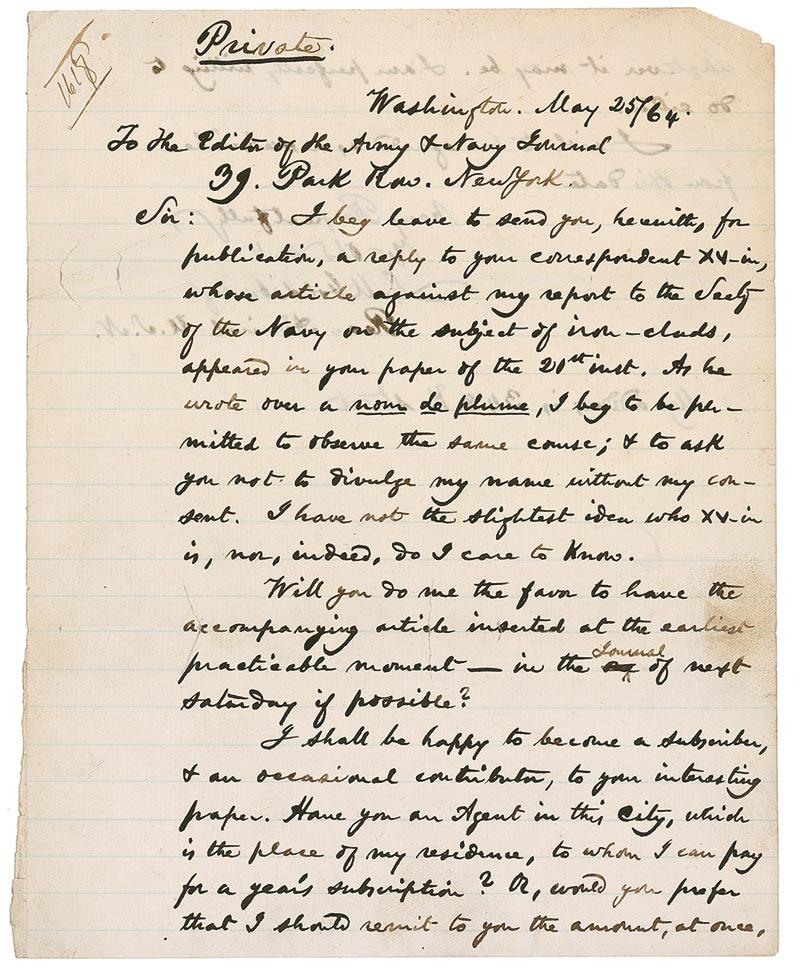 Private.
Washington. May 25/64.
To the Editor of the Army & Navy Journal
39. Park Row. New York.
Sir: I beg leave to send you, herewith, for
publication, a reply to your correspondent XV-in,
whose article against my report to the Secty
of the Navy on the subject of iron-clads,
appeared in your paper of the 20th inst. As he
wrote over a nom de plume, I beg to be per-
mitted to observe the same course; & to ask
you not to divulge my name without my con-
sent. I have not the slightest idea who XV-in
is, nor, indeed, do I care to know.
Will you do me the favor to have the
accompanying article inserted at the earliest
practicable moment — in the Journal of next
saturday if possible?
I shall be happy to become a subscriber,
& an occasional contributor, to your interesting
paper. Have you an Agent in this City, which
is the place of my residence, to whom I can pay
for a year's subscription? Or, would you prefer
that I should remit to you the amount, at once,